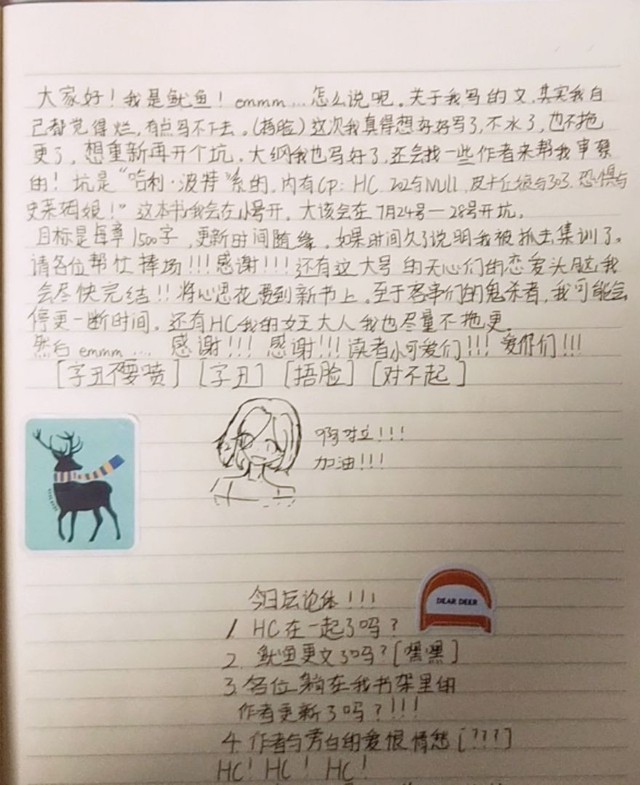 大家好！我是鱿鱼！emmm...怎么说呢。关于我写的文，其实我自
己都觉得烂，有点写不下去。(捂脸)这次我真得想好好写了，不水了，也不拖
更了，想重新再开个坑。大纲我也写好了，还会找一些作者来帮我审察
的！坑是"哈利·波特"系的，内有CP：HC. 202与Null. 
史莱姆娘！"这本书我会在小号开。大该会在7月24号—28号开坑。
目标是每章1500字，更新时间随缘。如果时间久了说明我被抓去集训了。
请各位帮忙捧场!!!感谢!!!还有这大号的天心们的恋爱头脑，我
会尽快完结!!将心思花费到新书上。至于客事们的鬼杀者，我可能会
停更一断时间，还有HC我的女王大人我也尽量不拖更。
然后emmm... 感谢!!! 感谢!!!读者小可爱们!!! 爱你们!!!
[字丑不要喷] [字丑] [捂脸] [对不起]
啊啦!!!
加油!!!
DEAR DEER
今日坛论体!!!
1. HC在一起了吗？
2. 鱿鱼更文了吗？[嘿嘿]
3. 各位躺在我书架里的
作者更新了吗？!!!
4. 作者与旁白的爱恨情愁[???]
HC！HC！HC！